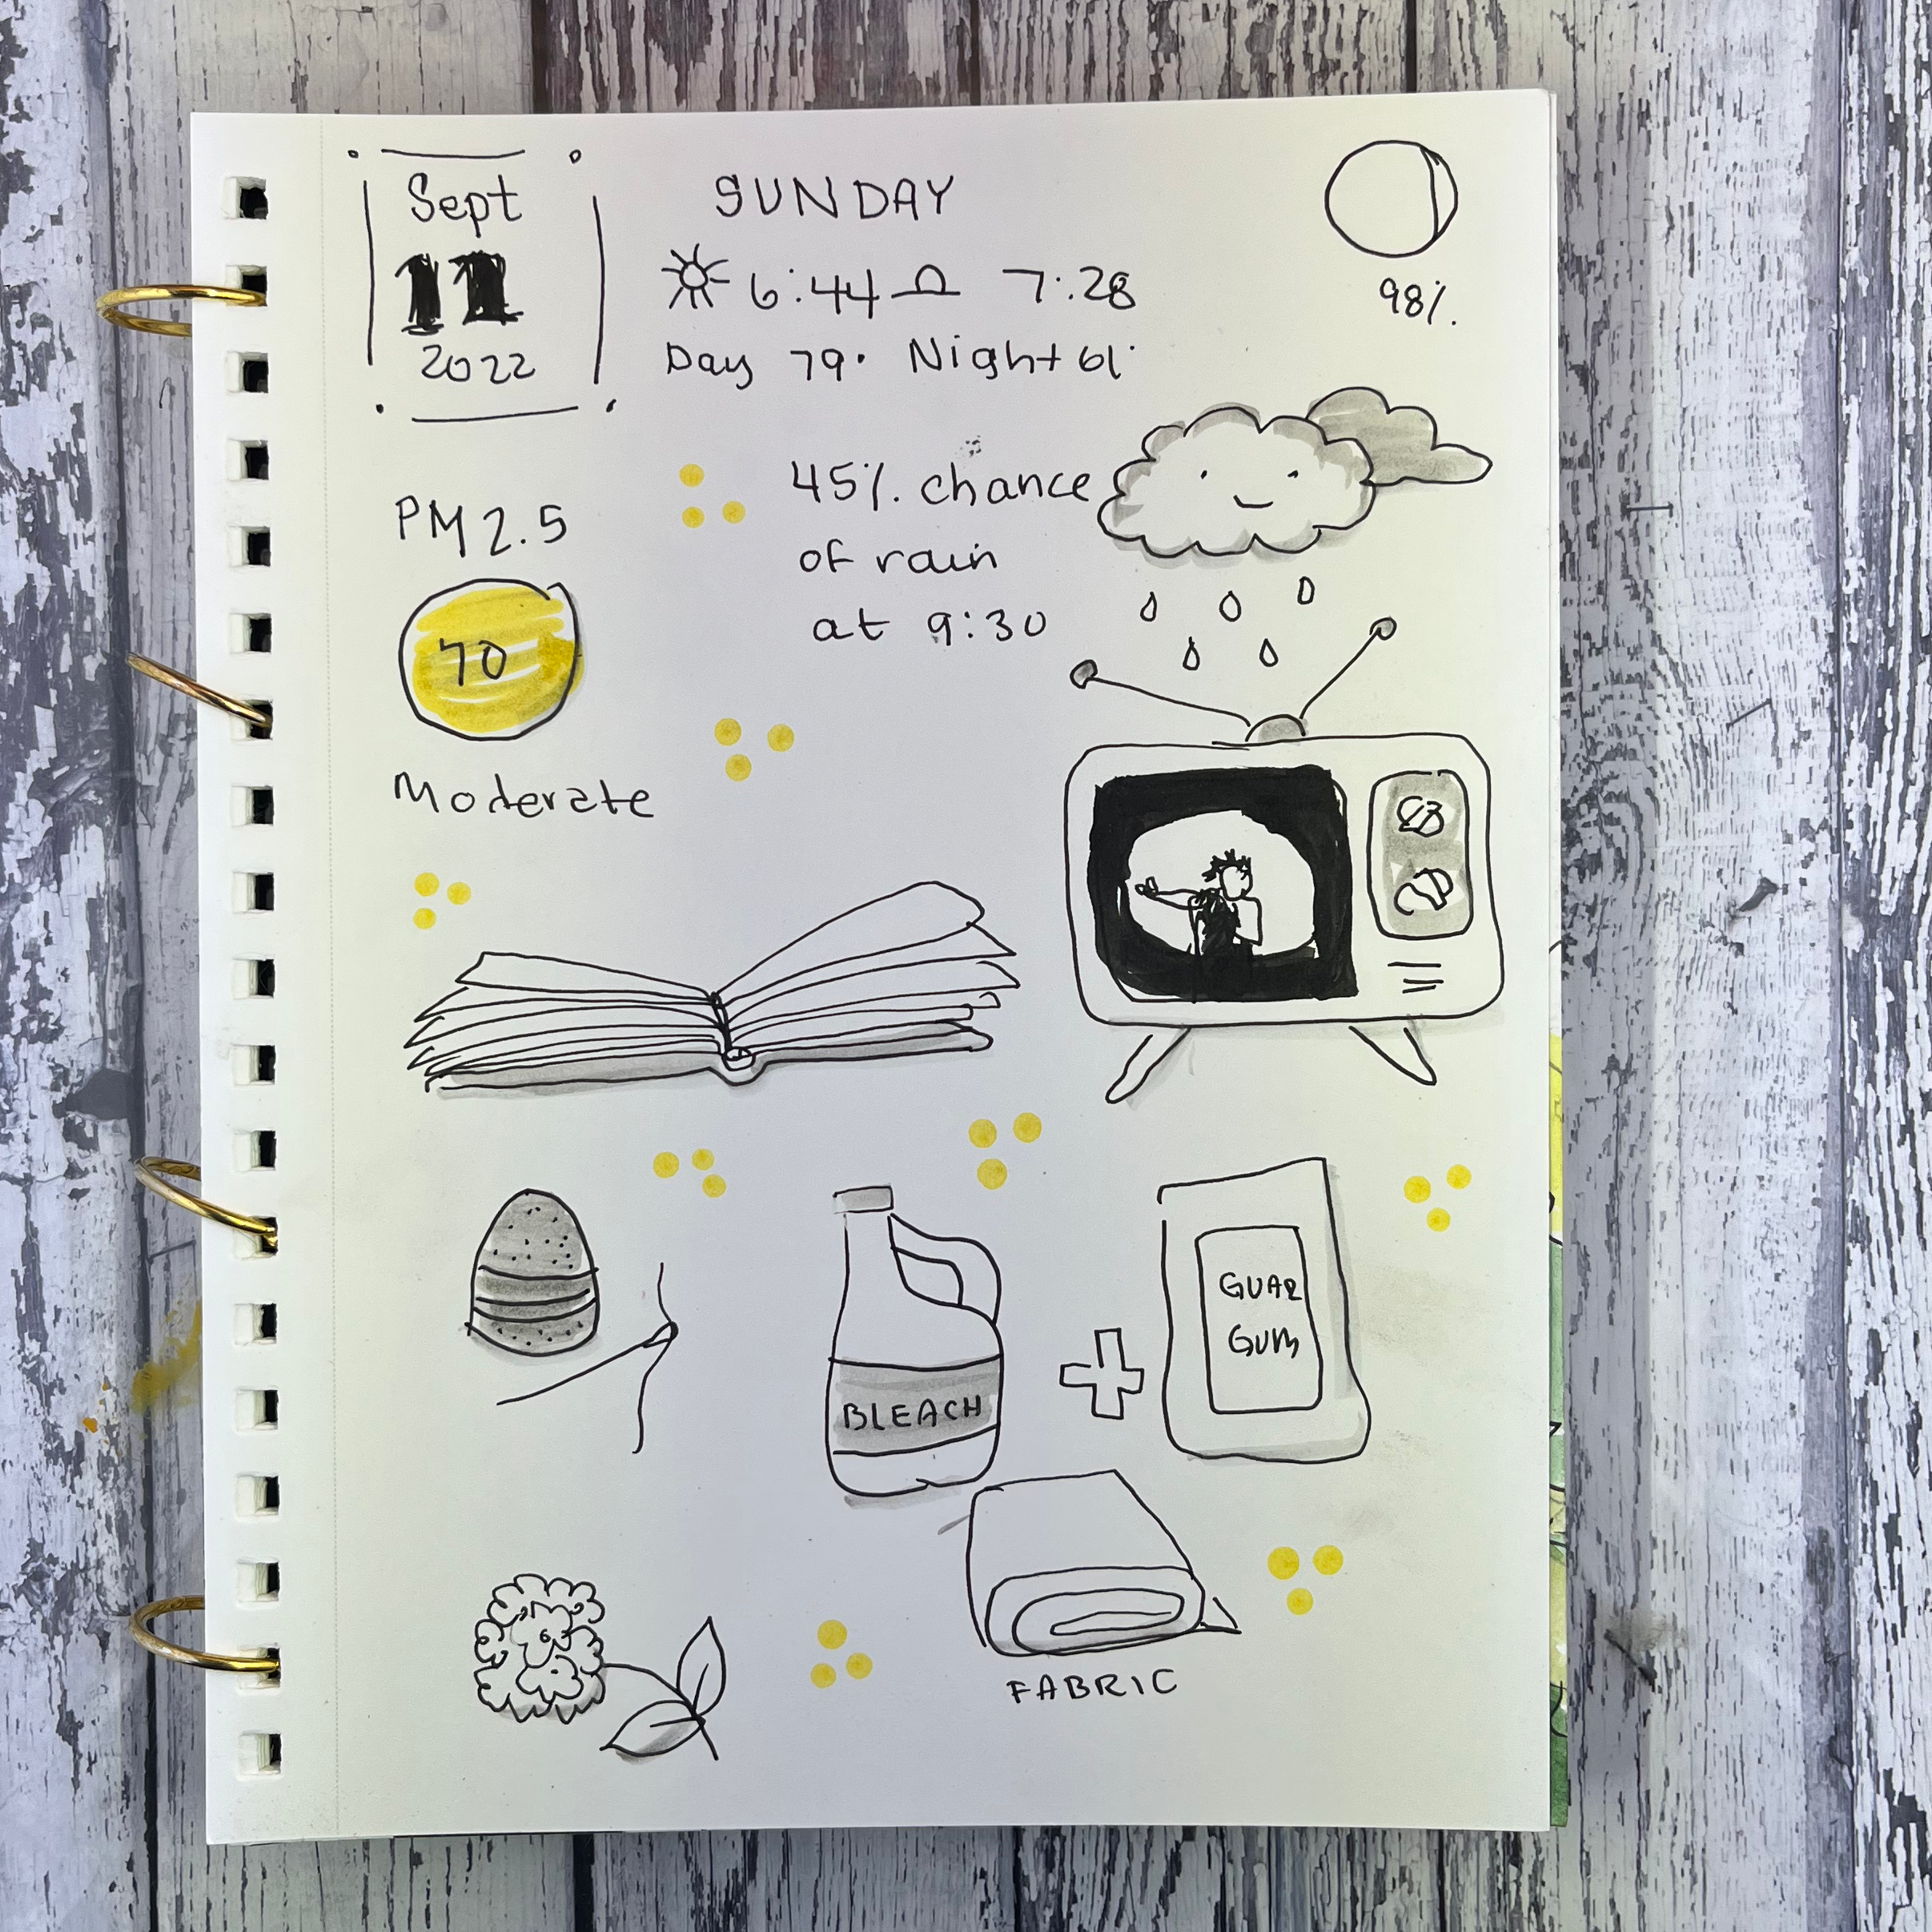 Sept
11
2022
SUNDAY
6:44 7:28
Day 79° Night 61°
98%.
PM 2.5
70
Moderate
45%. chance
of rain
at 9:30
BLEACH
GUAR
GUM
FABRIC